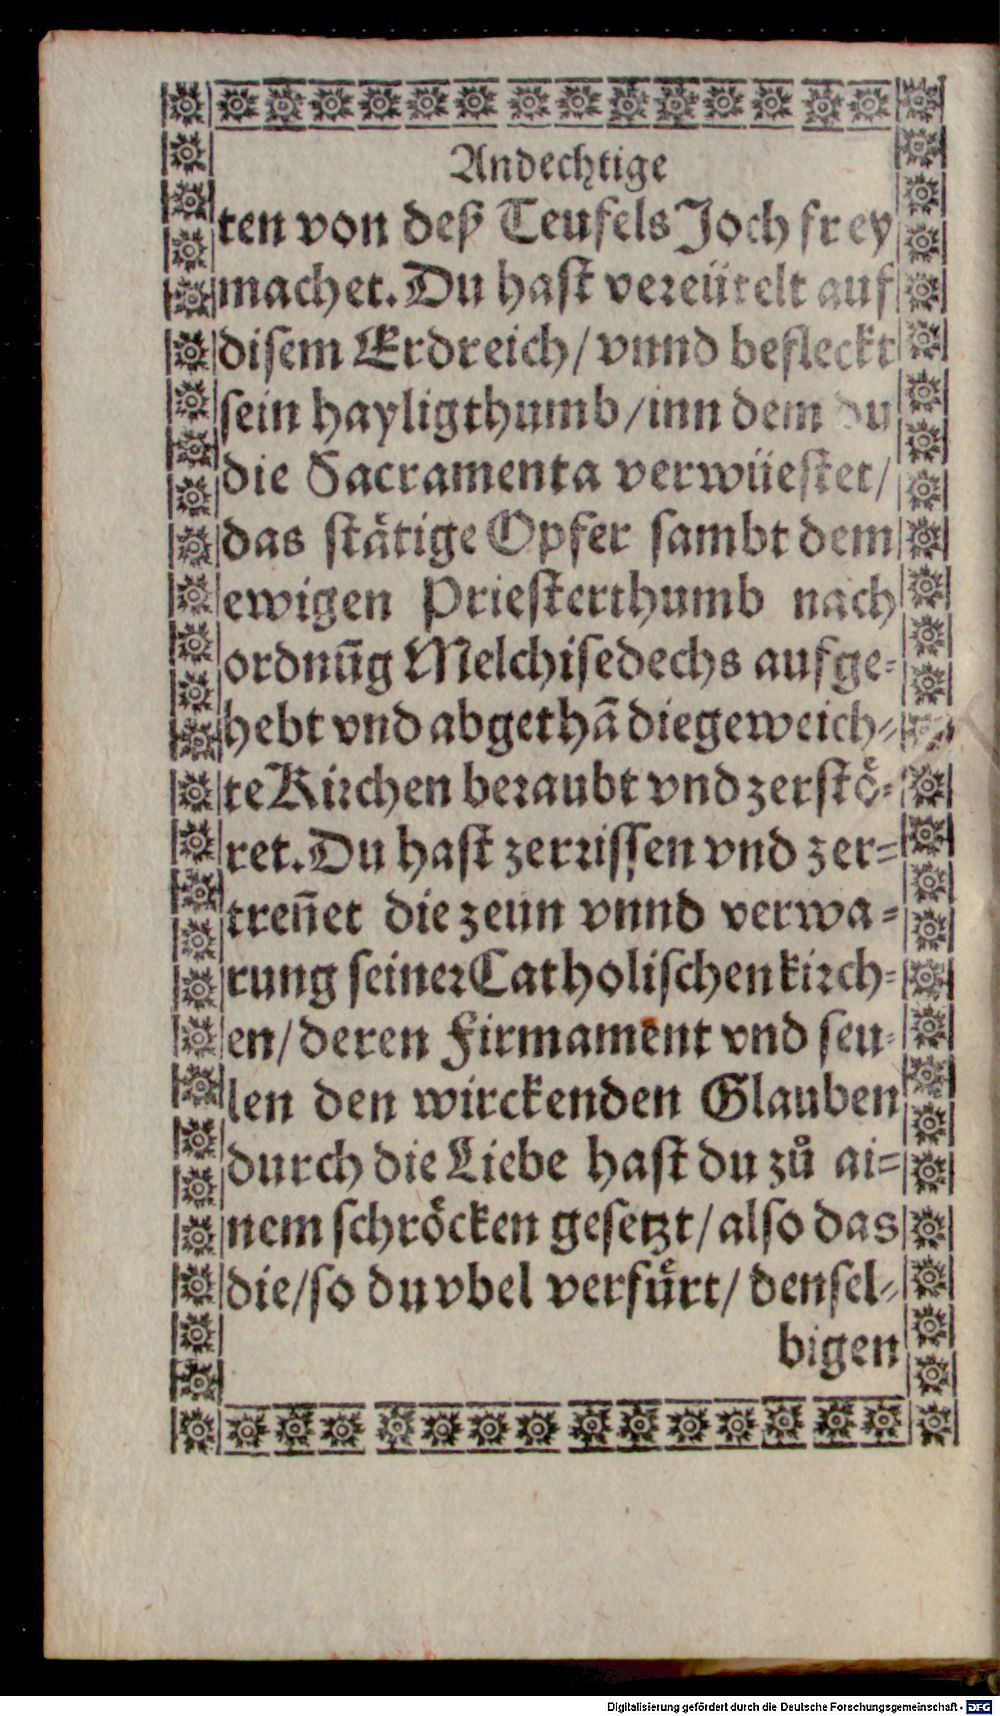 Andechtige
ten von deß Teufels Joch frey
machet. Du hast vereütelt auf
disem Erdreich/ vnnd befleckt
sein hayligthumb/ inn dem du
die Sacramenta verwüestet/
das stätige Opfer sambt dem
ewigen Priesterthumb nach
ordnūg Melchisedechs aufge-
hebt vnd abgethā die geweich-
te Kirchen beraubt vnd zerstö-
ret. Du hast zerrissen vnd zer-
treñet die zeün vnnd verwa-
rung seiner Catholischen kirch-
en/ deren Firmament vnd seu-
len den wirckenden Glauben
durch die Liebe hast du zů ai-
nem schröcken gesetzt/ also das
die/ so du vbel verfürt/ densel-
bigen
Digitalisierung gefördert durch die Deutsche Forschungsgemeinschaft - DFG